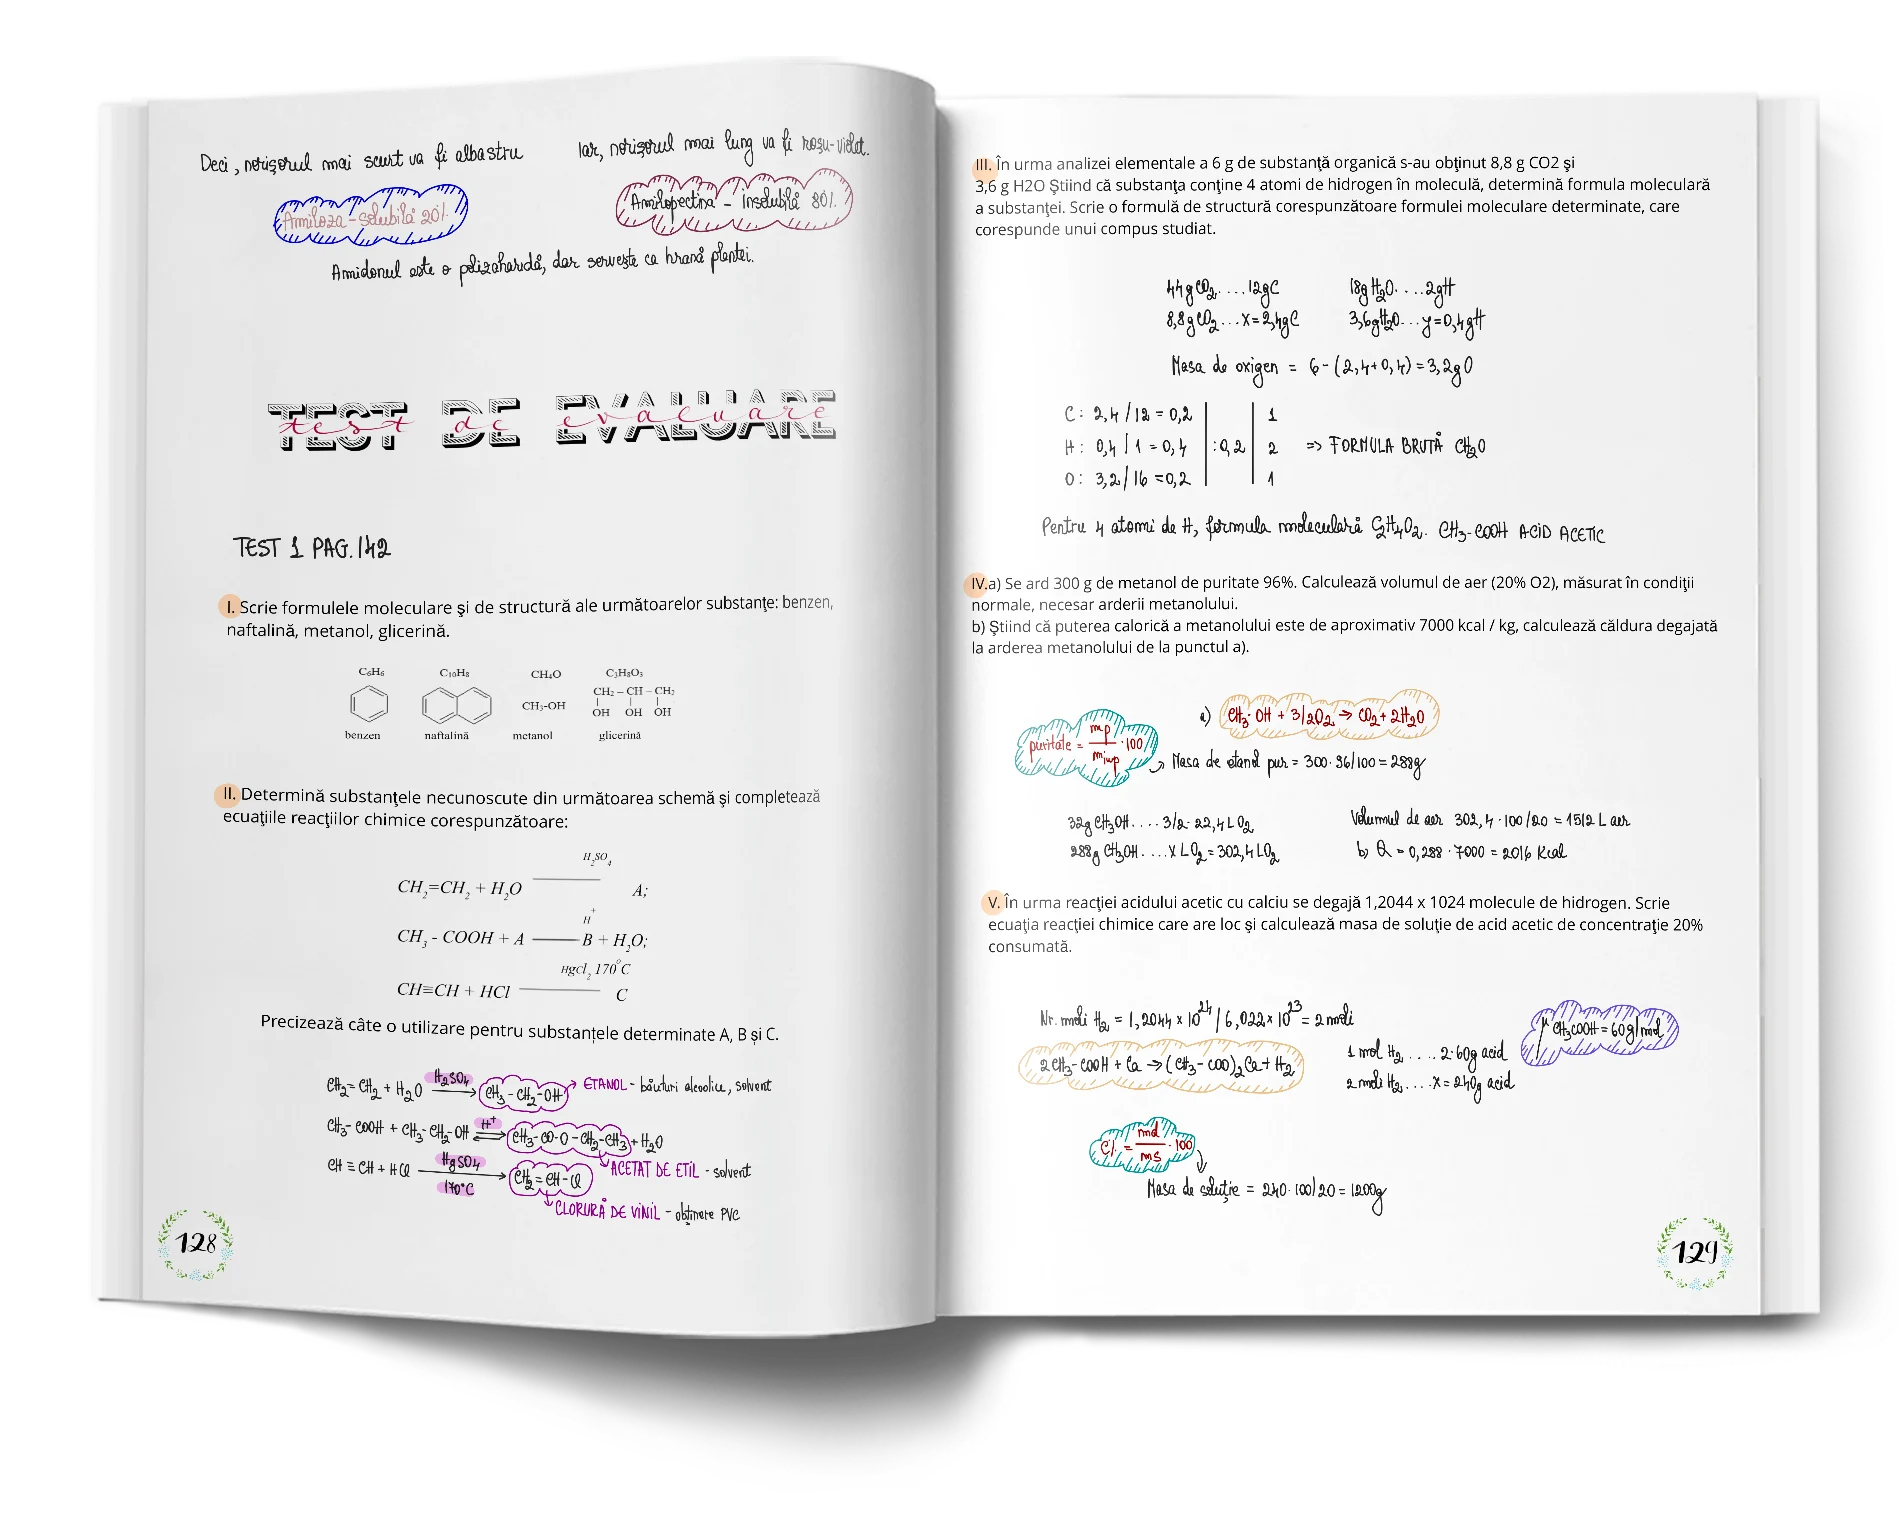 Deci, norișorul mai scurt va fi albastru
Iar, norișorul mai lung va fi roșu-violet.
Amiloza - solubilă 20%.
Amilopectina - Insolubilă 80%.
Amidonul este o polizaharidă, dar servește ca hrană plantei.
TEST DE EVALUARE
test de evaluare
TEST 1 PAG.142
I. Scrie formulele moleculare şi de structură ale următoarelor substanţe: benzen,
naftalină, metanol, glicerină.
C6H6 C10H8 CH4O C3H8O3
CH2 – CH – CH2
CH3-OH
OH OH OH
benzen naftalină metanol glicerină
II. Determină substanţele necunoscute din următoarea schemă şi completează
ecuaţiile reacţiilor chimice corespunzătoare:
H2SO4
CH2=CH2 + H2O A;
H+
CH3 - COOH + A B + H2O;
Hgcl2 170°C
CH≡CH + HCl C
Precizează câte o utilizare pentru substanțele determinate A, B și C.
CH2=CH2 + H2O H2SO4 → CH3-CH2-OH → ETANOL - băuturi alcoolice, solvent
CH3-COOH + CH3-CH2-OH H+ ⇌ CH3-CO-O-CH2-CH3 + H2O
ACETAT DE ETIL - solvent
CH≡CH + HCl HgSO4 170°C → CH2=CH-Cl
CLORURĂ DE VINIL - obținere PVC
128
III. În urma analizei elementale a 6 g de substanţă organică s-au obţinut 8,8 g CO2 şi
3,6 g H2O Ştiind că substanţa conţine 4 atomi de hidrogen în moleculă, determină formula moleculară
a substanţei. Scrie o formulă de structură corespunzătoare formulei moleculare determinate, care
corespunde unui compus studiat.
44g CO2....12gC 18g H2O....2gH
8,8g CO2...x=2,4gC 3,6gH2O...y=0,4gH
Masa de oxigen = 6-(2,4+0,4)=3,2gO
C: 2,4/12 = 0,2 1
H: 0,4/1 = 0,4 :0,2 2 => FORMULA BRUTĂ CH2O
O: 3,2/16 = 0,2 1
Pentru 4 atomi de H, formula moleculară C2H4O2. CH3-COOH ACID ACETIC
IV.a) Se ard 300 g de metanol de puritate 96%. Calculează volumul de aer (20% O2), măsurat în condiţii
normale, necesar arderii metanolului.
b) Ştiind că puterea calorică a metanolului este de aproximativ 7000 kcal / kg, calculează căldura degajată
la arderea metanolului de la punctul a).
a) CH3-OH + 3/2O2 → CO2 + 2H2O
puritate = mp/mimp · 100
Masa de etanol pur = 300·96/100 = 288g
32g CH3OH....3/2·22,4 L O2
288g CH3OH....x L O2 = 302,4 L O2
Volumul de aer 302,4·100/20 = 1512 L aer
b) Q = 0,288·7000 = 2016 Kcal
V. În urma reacţiei acidului acetic cu calciu se degajă 1,2044 x 1024 molecule de hidrogen. Scrie
ecuaţia reacţiei chimice care are loc şi calculează masa de soluţie de acid acetic de concentraţie 20%
consumată.
Nr. moli H2 = 1,2044 x 10^24 / 6,022 x 10^23 = 2 moli
μ CH3COOH = 60g/mol
2CH3-COOH + Ca → (CH3-COO)2Ca + H2
1 mol H2....2·60g acid
2 moli H2....x=240g acid
C% = md/ms · 100
Masa de soluție = 240·100/20 = 1200g
129